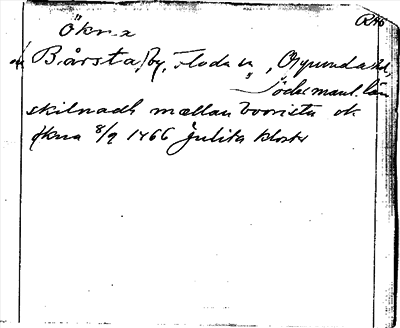 Ökna
RAp
av Bårsta, by, Floda sn, Oppunda hd,
Södermanl. län
skilnadh mællan boorista ok
økna 8/9 1466 Julita kloster